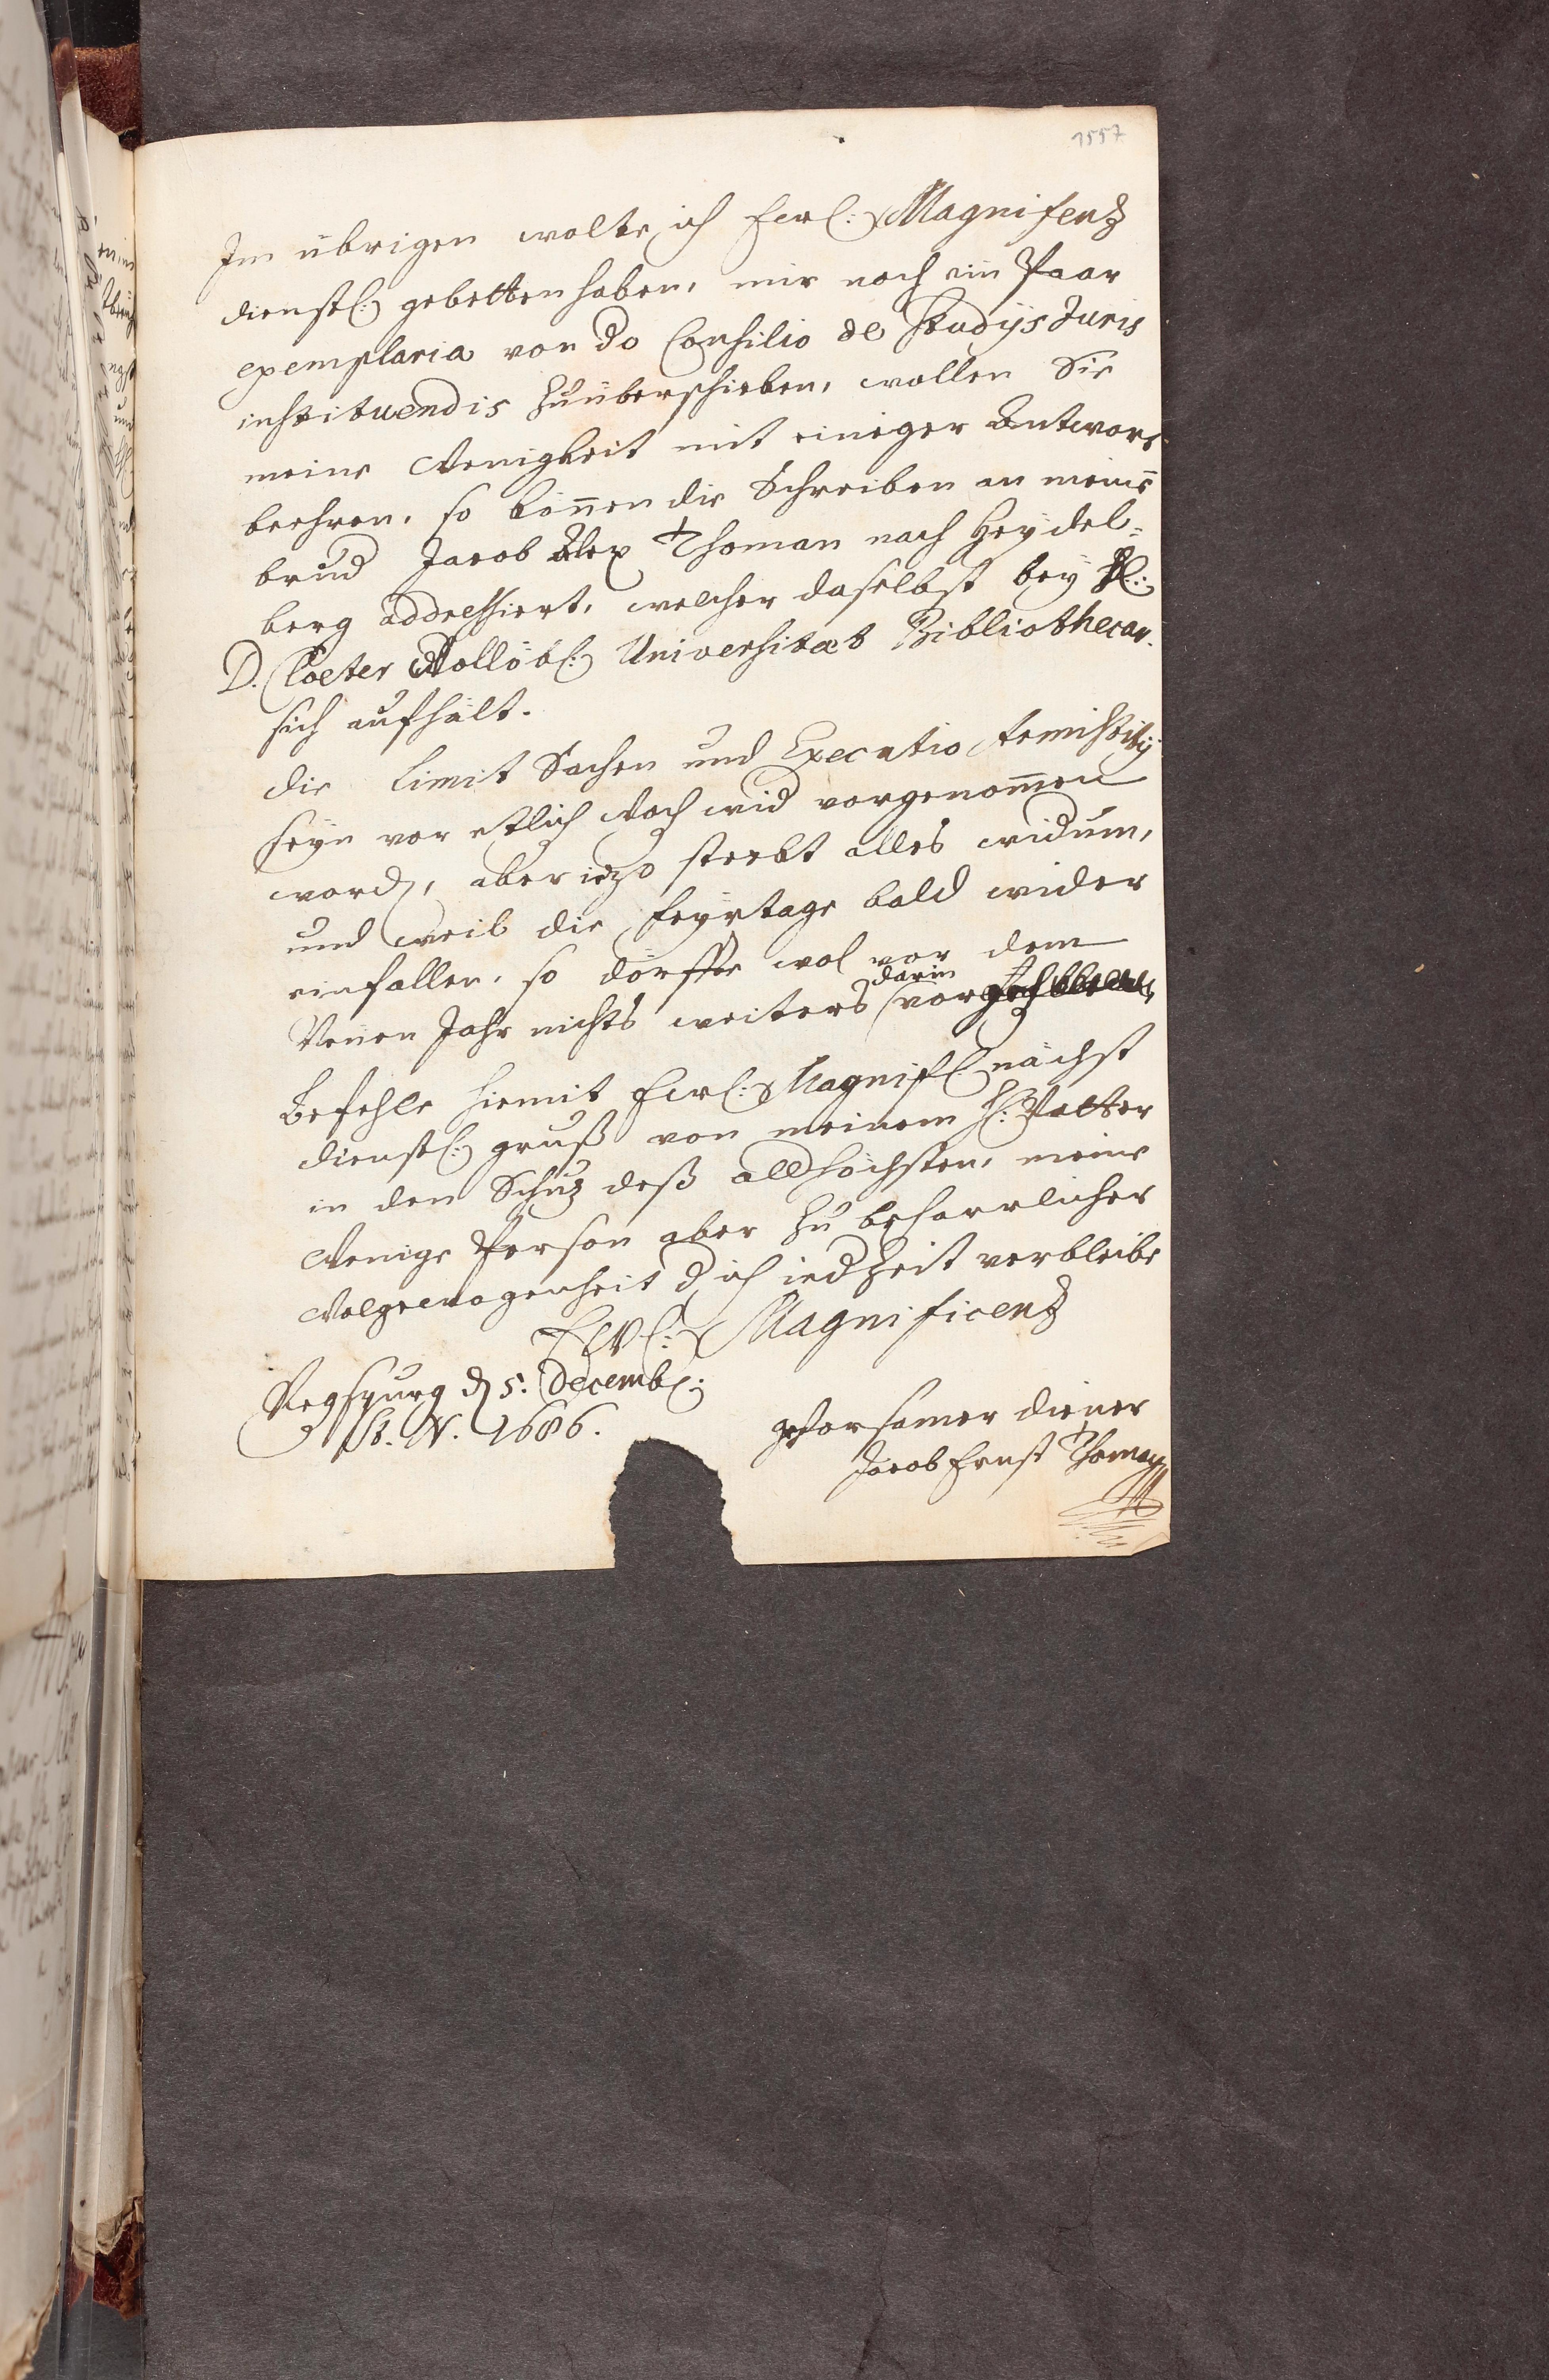 1557
Im übrigen wolte ich Ewl: Magnifenz
dienstl: gebetten haben, mir noch ein Paar
exemplaria von do Consilio de Studijs Juris
instituendis zuüberschicken, wollen Sie
meine Wenigkeit mit einiger Antwort
beehren, so können die Schreiben an meinē
brud Jacob Alex Thoman nach Heydel=
berg addressiert, welcher daselbst bey H:
D. Cloeter Wollöbl: Universitæt Bibliothecar.
sich aufhält.
die Limit Sachen und Executio Armistitij
seyn vor etlich Woch wid vorgenom̄en
word, aber iezo steckt alles widum,
und weil die Feyrtage bald wider
einfallen, so dörffte wol vor dem
darin
Neuen Jahr nichts weiters vor
Befehle hiemit Ewl: Magnifl: nächst
dienstl: gruß von meinem H: Vatter
in den Schuz deß allhöchsten, meine
Wenige Person aber zu beharrlicher
Wolgewogenheit d ich iedzeit verbleibe
EWl: Magnificenz
Regspurg d 5. Decemb:
St. N. 1686.
gehorsamer diener
Jacob Ernst Thoman